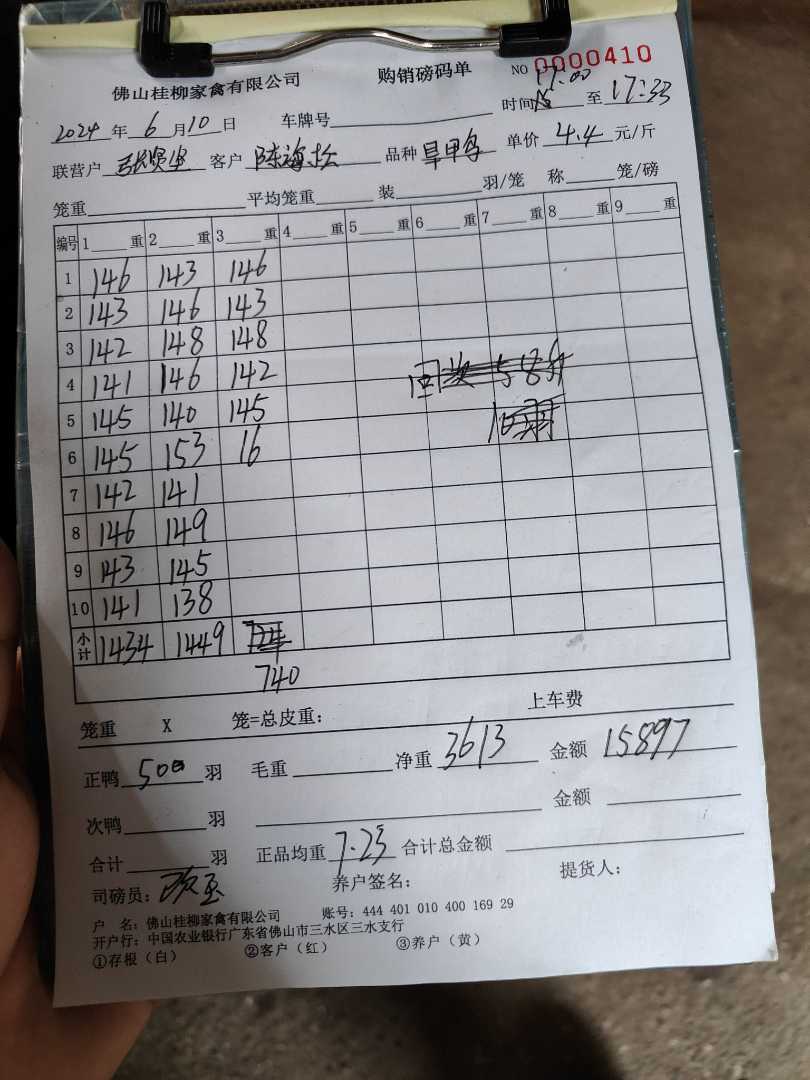 佛山桂柳家禽有限公司 购销磅码单 NO 0000410
2024年6月10日 车牌号 时间 17:00 至 17:33
联营户 张贤生 客户 陈海松 品种 旱甲 单价 4.4 元/斤
笼重 平均笼重 装 羽/笼 称 笼/磅
编号 1 重 2 重 3 重 4 重 5 重 6 重 7 重 8 重 9 重
1 146 143 146
2 143 146 143
3 142 148 148
4 141 146 142
5 145 140 145
6 145 153 16
7 142 141
8 146 149
9 143 145
10 141 138
小计 1434 1449
740
笼重 X 笼=总皮重: 上车费
正鸭 500 羽 毛重 净重 3613 金额 15897
次鸭 羽 金额
合计 羽 正品均重 7.23 合计总金额
司磅员: 养户签名: 提货人:
户 名: 佛山桂柳家禽有限公司 账号: 444 401 010 400 169 29
开户行: 中国农业银行广东省佛山市三水区三水支行
①存根(白) ②客户(红) ③养户(黄)